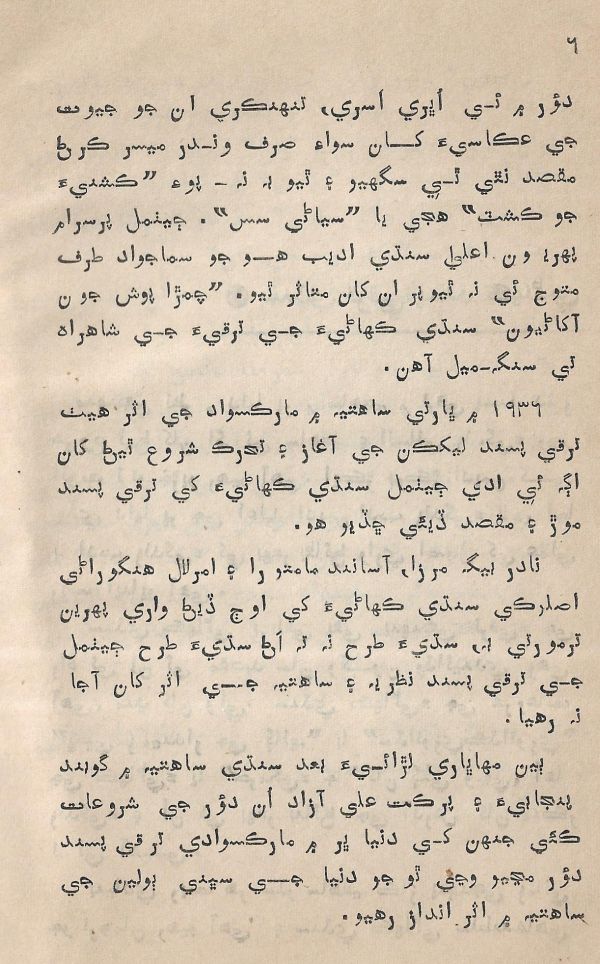 ٦
دؤر ۾ ئي اُڀري اُسري، تنهنڪري ان جو جيوت
جي عڪاسيءَ کان سواءِ صرف وندر ميسر ڪرڻ
مقصد نٿي ٿي سگهيو ۽ ٿيو به نه - پوءِ ”ڪشنيءَ
جو ڪشٽ“ هجي يا ”سياڻي سس“. ڄيٺمل پرسرام
پهريون اعليٰ سنڌي اديب هو جو سماجواد طرف
متوج ئي نه ٿيو پر ان کان متاثر ٿيو. ”چمڙا پوش جون
آکاڻيون“ سنڌي ڪهاڻيءَ جي ترقيءَ جي شاهراه
تي سنگ-ميل آهن.
١٩٣٦ ۾ ڀارتي ساهتيه ۾ مارڪسواد جي اثر هيٺ
ترقي پسند ليکڪن جي آغاز ۽ تحرڪ شروع ٿيڻ کان
اڳه ئي ادي ڄيٺمل سنڌي ڪهاڻيءَ کي ترقي پسند
موڙ ۽ مقصد ڏيئي ڇڏيو هو.
نادر بيگ مرزا، آسانند مامتورا ۽ امرلال هنگوراڻي
اصلوڪي سنڌي ڪهاڻيءَ کي اوج ڏيڻ واري پهرين
ترمورتي به، سڌيءَ طرح نه ته اڻ سڌيءَ طرح ڄيٺمل
جي ترقي پسند نظريه ۽ ساهتيه جي اثر کان آجا
نه رهيا.
ٻين مهاڀاري لڙائيءَ بعد سنڌي ساهتيه ۾ گوبند
پنجابيءَ ۽ برڪت علي آزاد اُن دؤر جي شروعات
ڪئي جنهن کي دنيا ڀر ۾ مارڪسوادي ترقي پسند
دؤر مڃيو وڃي ٿو جو دنيا جي سڀني ٻولين جي
ساهتيه ۾ اثر انداز رهيو.